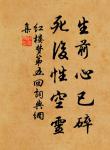 生前心已碎
死後性空靈
紅樓夢第五回詞典網
集